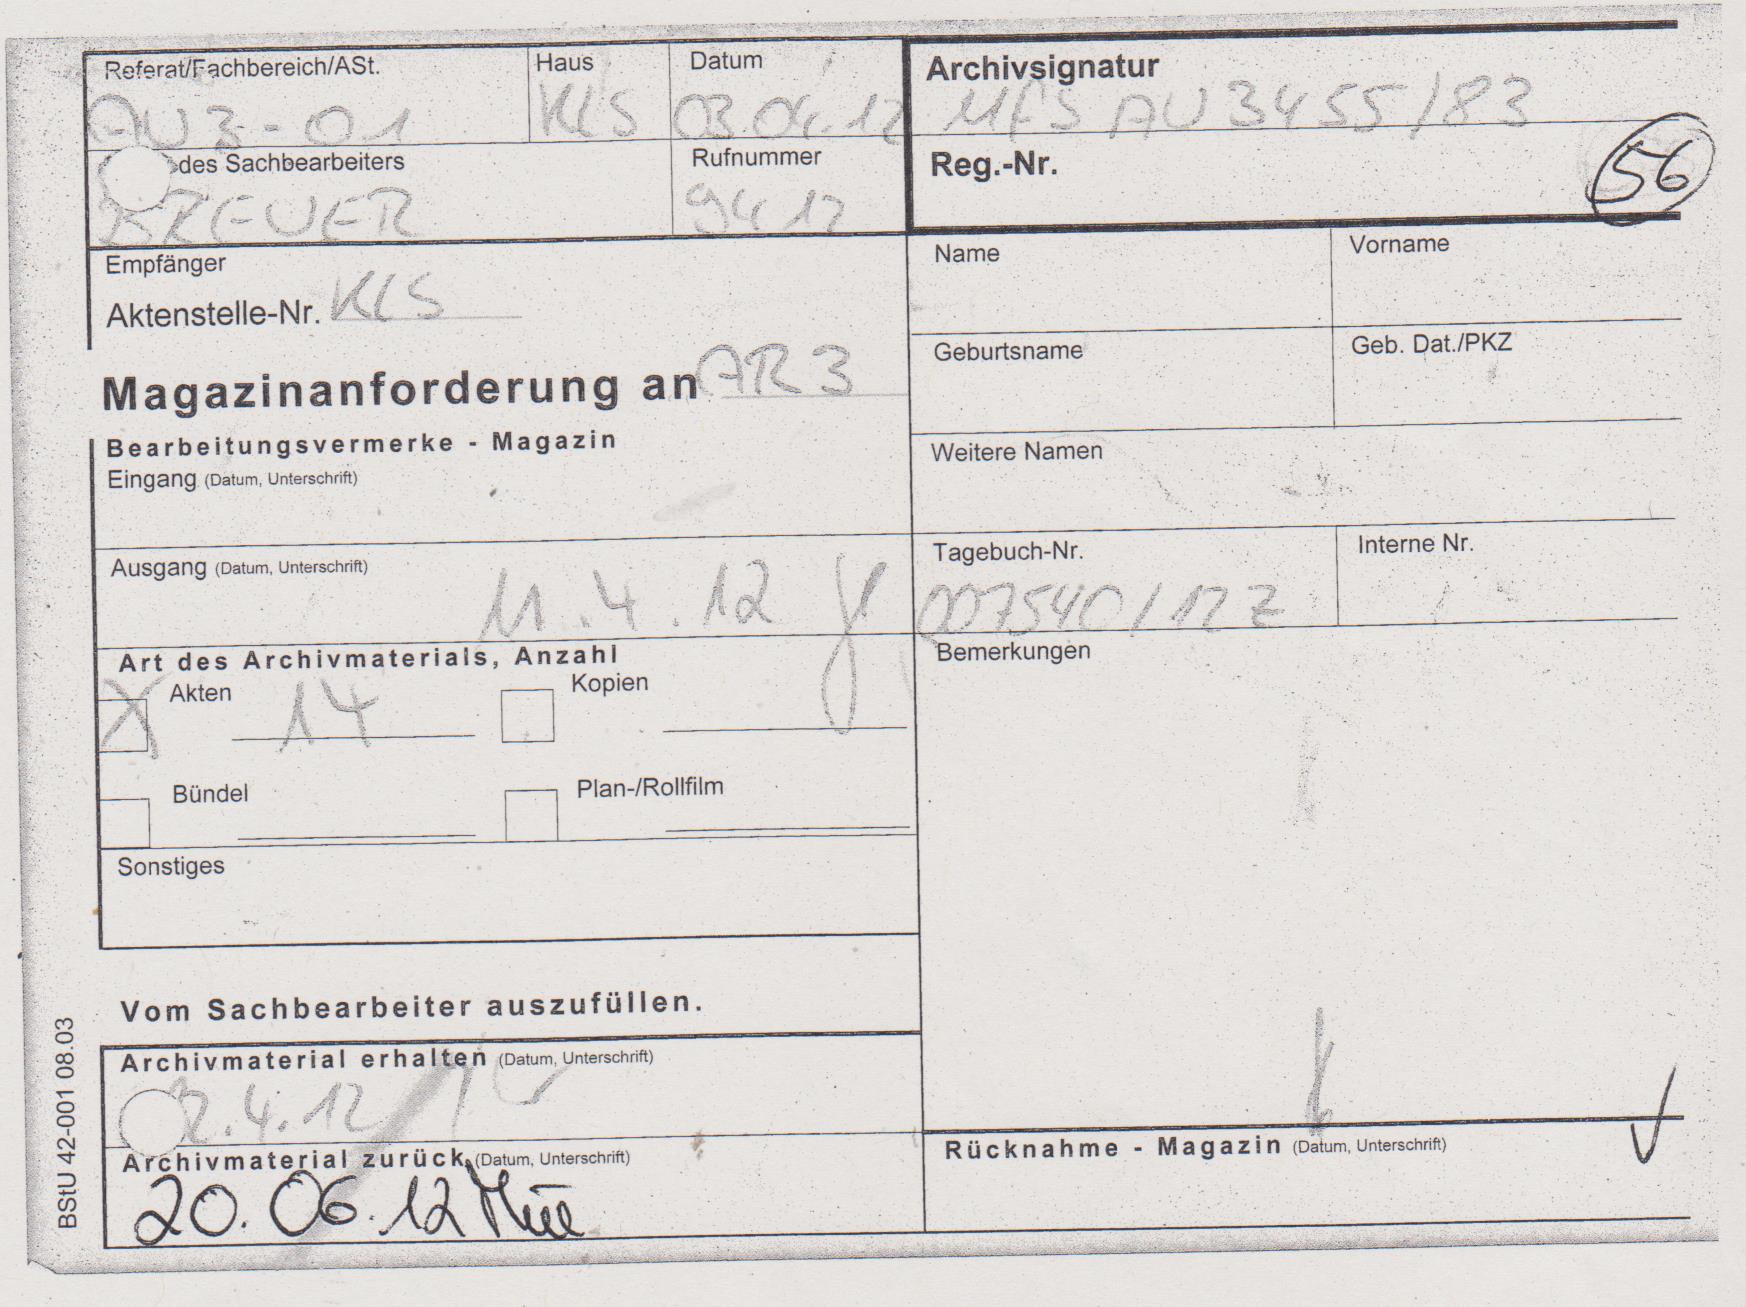 Referat/Fachbereich/ASt.
AU 3 - 01
Haus
KLS
Datum
03.04.12
Archivsignatur
MfS AU 3455/83
des Sachbearbeiters
BREUER
Rufnummer
9412
Reg.-Nr.
56
Empfänger
Aktenstelle-Nr. KLS
Name
Vorname
Magazinanforderung an AR 3
Geburtsname
Geb. Dat./PKZ
Bearbeitungsvermerke - Magazin
Eingang (Datum, Unterschrift)
Weitere Namen
Ausgang (Datum, Unterschrift)
11.4.12
Tagebuch-Nr.
007540/12 Z
Interne Nr.
Art des Archivmaterials, Anzahl
X Akten 14
Kopien
Bündel
Plan-/Rollfilm
Sonstiges
Bemerkungen
Vom Sachbearbeiter auszufüllen.
Archivmaterial erhalten (Datum, Unterschrift)
2.4.12
Archivmaterial zurück (Datum, Unterschrift)
20.06.12
Rücknahme - Magazin (Datum, Unterschrift)
BStU 42-001 08.03